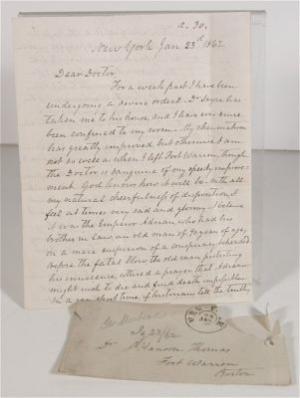 a. 30.
New York Jan 23d 1862
Dear Doctor,
For a week past I have been
undergoing a severe ordeal. Dr Sayre has
taken me to his house, and I have ever since
been confined to my room. My rheumatism
has greatly improved but otherwise I am
not so well as when I left Fort Warren, though
the Doctor is sanguine of my speedy improve-
ment. God knows how it will be. With all
my natural cheerfulness of disposition I
feel at times very sad and gloomy. I believe
it was the Emperor Adrian who had his
brother in law, an old man of 90 years of age,
on a mere suspicion of a conspiracy, beheaded
before the fatal blow the old man protesting
his innocence, uttered a prayer that Adrian
might wish to die and find death impossible.
In a very short time, if historians tell the truth,
Jan 23/62
Dr A Hanson Thomas
Fort Warren
Boston